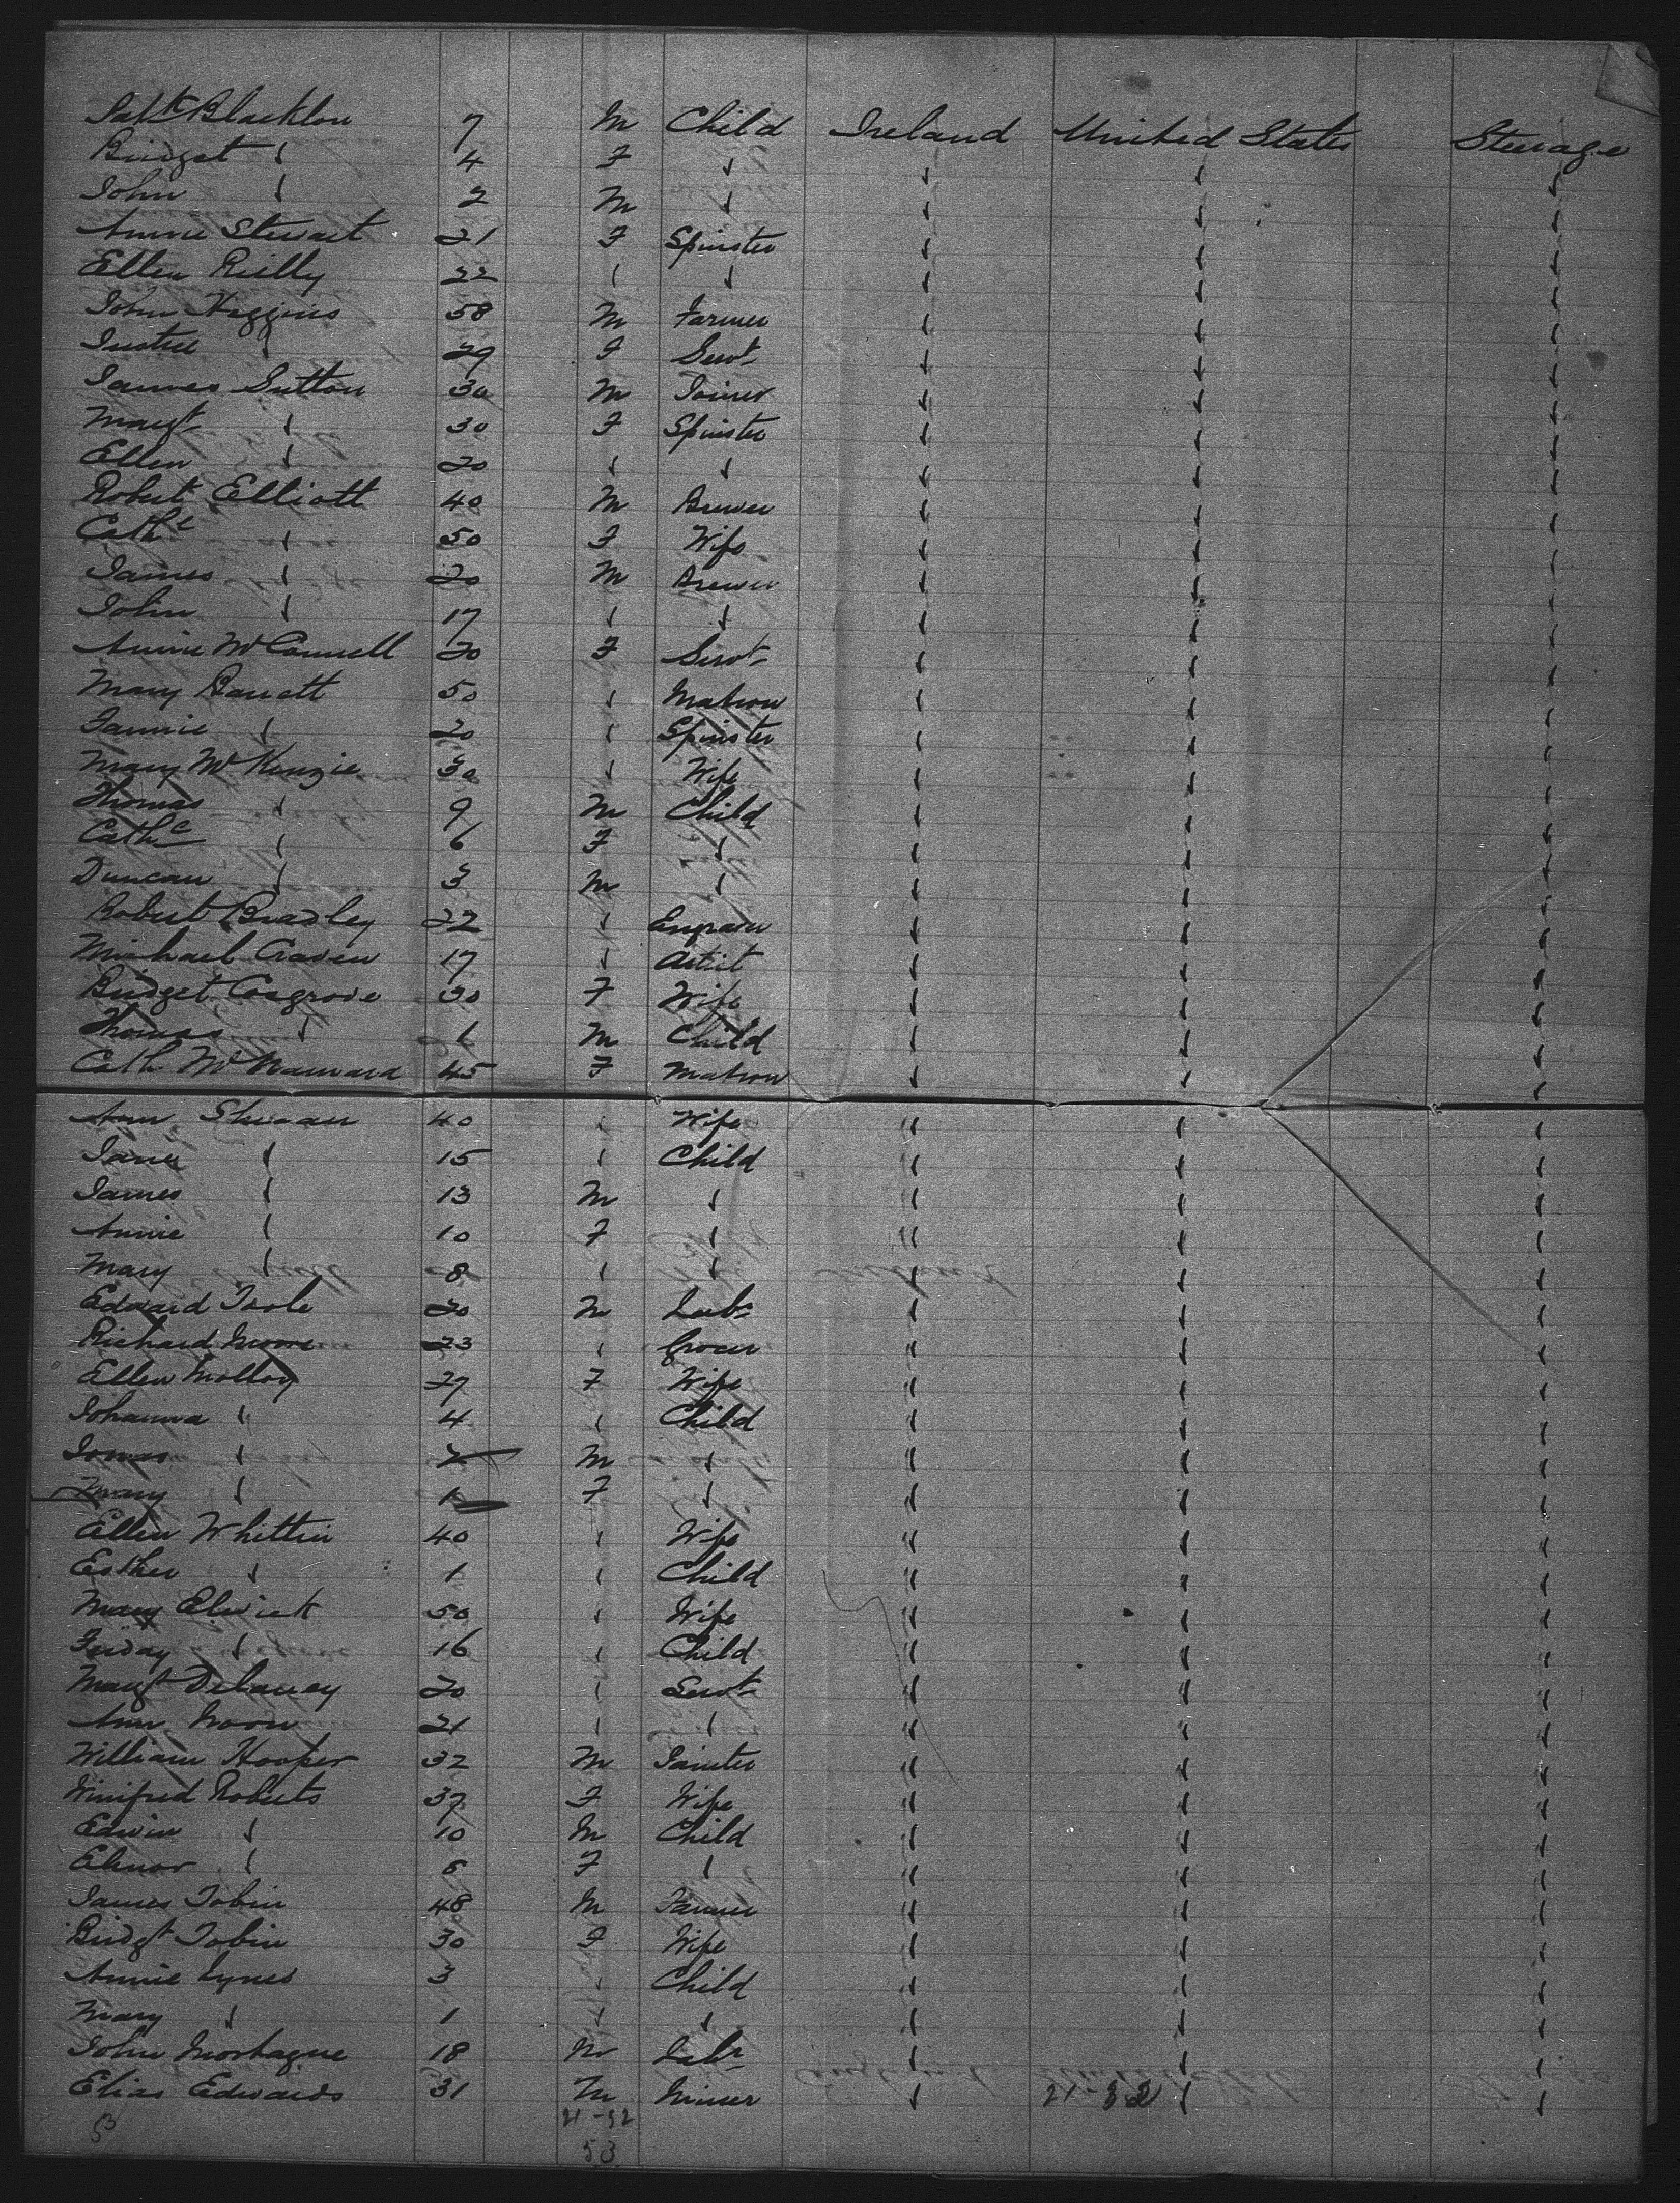 Patk Blackton 7 M Child Ireland United States Steerage
Bridget " 4 F "
John " 2 M "
Annie Stewart 21 F Spinster
Ellen Reilly 22 " "
John Higgins 58 M Farmer
" 29 F Servt
James Sutton 30 M Joiner
Margt " 30 F Spinster
Ellen " 20 " "
Robert Elliott 40 M Brewer
Cathe " 50 F Wife
James " 20 M Brewer
John " 17 " "
Annie McConnell 20 F Servt
Mary Barrett 50 " Matron
Fannie " 20 " Spinster
Mary McKenzie 30 " Wife
Thomas " 9 M Child
Cathe " 6 F "
Duncan " 3 M "
Robert Bradley 22 " Engraver
Michael Craven 17 " Artist
Bridget Cosgrove 30 F Wife
Thomas " M Child
Cath McNamara 45 F Matron
Ann 40 " Wife
Jane " 15 " Child
James " 13 M "
Annie " 10 F "
Mary " 8 " "
Edward Toole 20 M Labr
Richard Moore 23 " Grocer
Ellen Molloy 27 F Wife
Johanna " 4 " Child
" M "
Mary " 1 F "
Ellen Whittier 40 " Wife
Esther " 1 " Child
Mary 50 " Wife
" 16 " Child
Margt Delaney 20 " Servt
Ann 21 " "
William Hooper 32 M
Winifred Roberts 37 F Wife
Edwin " 10 M Child
Elinor " F "
James Tobin 48 M Farmer
Bridgt Tobin 30 F Wife
Annie Lynes 3 " Child
Mary " 1 " "
John Montague 18 M Labr
Elias Edwards 31 M Miner 21-32
53 21-32
53